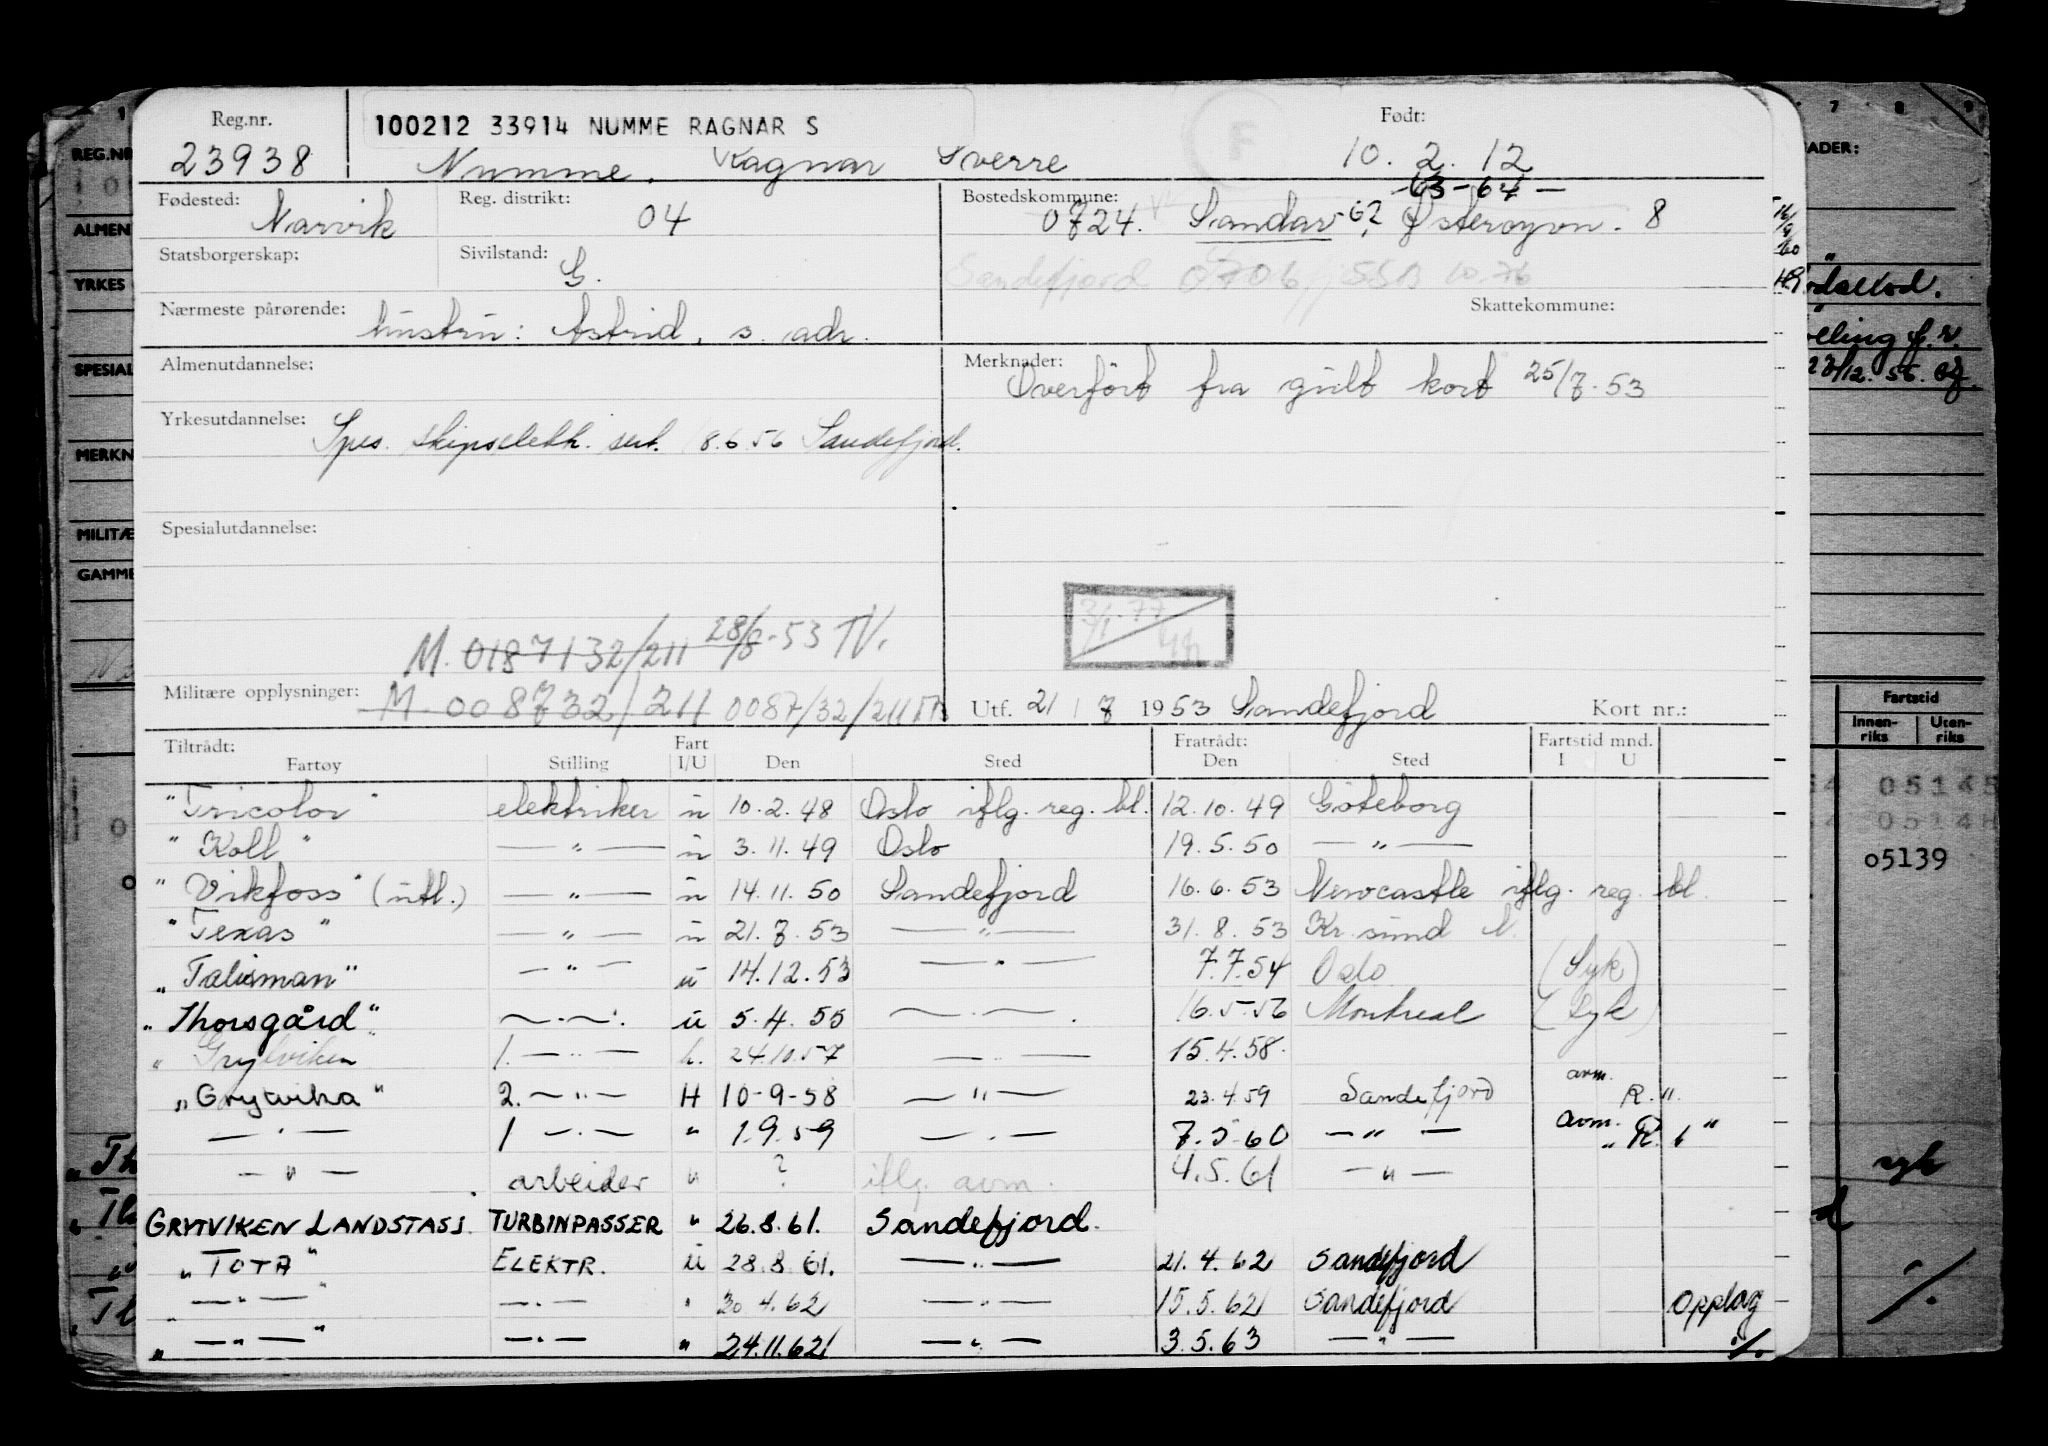 Reg.nr. 100212 33914 NUMME RAGNAR S Født:
23938 Numme, Ragnar Sverre 10. 2. 12
63-64-
Fødested: Narvik Reg. distrikt: 04 Bostedskommune: 0724. Sandar 62, Østerøyvn. 8
Statsborgerskap: Sivilstand: G. Sandefjord 0706 10.76
Nærmeste pårørende: hustru: Astrid, s. adr. Skattekommune:
Almenutdannelse: Merknader: Overført fra gult kort 25/7-53
Yrkesutdannelse: Spes. skipselektr. sert. 18.6.56 Sandefjord.
Spesialutdannelse:
3/1.77
M. 0187132/211 28/8-53 TV.
Militære opplysninger: M 008732/211 0087/32/211 Utf. 21/7 1953 Sandefjord Kort nr.:
Tiltrådt: Fart Fratrådt: Fartstid mnd.
Fartøy Stilling I/U Den Sted Den Sted I U
"Tricolor" elektriker u 10.2.48 Oslo iflg. reg. bl. 12.10.49 Göteborg
"Koll" — " — u 3.11.49 Oslo 19.5.50 — " —
"Vikfoss" (utl.) — " — u 14.11.50 Sandefjord 16.6.53 Newcastle iflg. reg. bl.
"Texas" — " — u 21.7.53 — " — 31.8.53 Kr.sund N.
"Talisman" — " — u 14.12.53 — " — 7.7.54 Oslo (Syk)
"Thorsgård" — " — u 5.4.55 — " — 16.5-56 Montreal (Syk)
" Grytviken 1. — " — h. 24.10.57 — " — 15.4.58.
"Grytvika" 2. — " — H 10-9-58 — " — 23.4.59 Sandefjord avm. R.11.
— " — 1 — " — " 1.9.59 — " — 7.5-60 — " — avm. "R. 6"
— " — arbeider " ? iflg. avm. 4.5.61 — " —
GRYTVIKEN LANDSTASJ. TURBINPASSER " 26.8.61. Sandefjord.
"TOTA" ELEKTR. u 28.8.61. — " — 21.4.62 Sandefjord
" — " — " — " — " 30 4.62 — " — 15.5.62 Sandefjord Opplag
" — " — " — " — " 24.11.62 — " — 3.5.63 — " — ./.
1 7 8 9
REG.NR
ALMEN
YRKES
SPESIAL
MERKN
MILITÆ
GAMME
ADER:
27/12.56.
Fartstid
Innen-riks Uten-riks
05145
05148
o5139
syk
./.